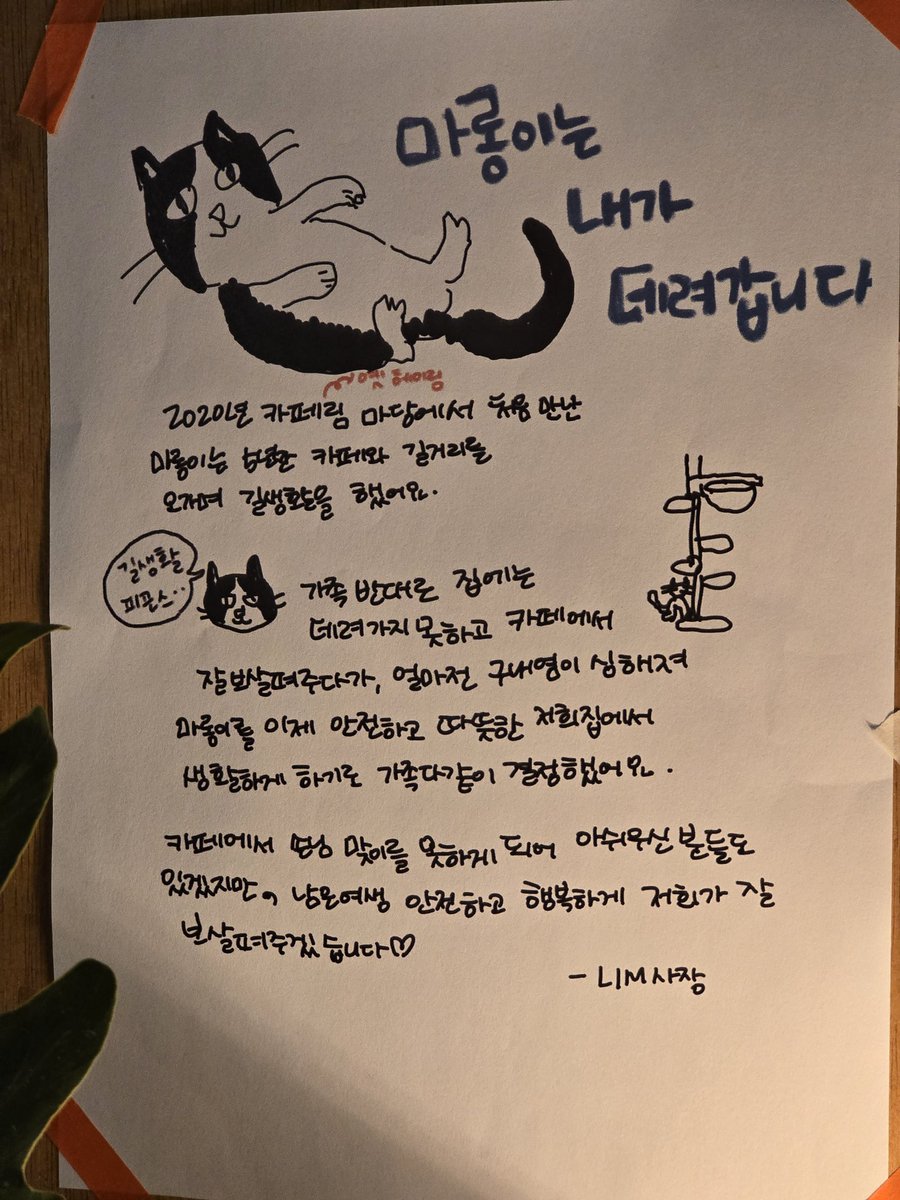 마롱이는
내가
데려갑니다
옛 헤이림
2020년 카페림 마당에서 처음 만난
마롱이는 카페와 길거리를
오가며 길생활을 했어요.
길생활
피곤스..
가족 반대로 집에는
데려가지 못하고 카페에서
잘 보살펴주다가, 얼마전 구내염이 심해져
마롱이를 이제 안전하고 따뜻한 저희집에서
생활하게 하기로 가족 다같이 결정했어요.
카페에서 맞이를 못하게 되어 아쉬우신 분들도
있겠지만, 남은여생 안전하고 행복하게 저희가 잘
보살펴주겠습니다♡
- LIM사장